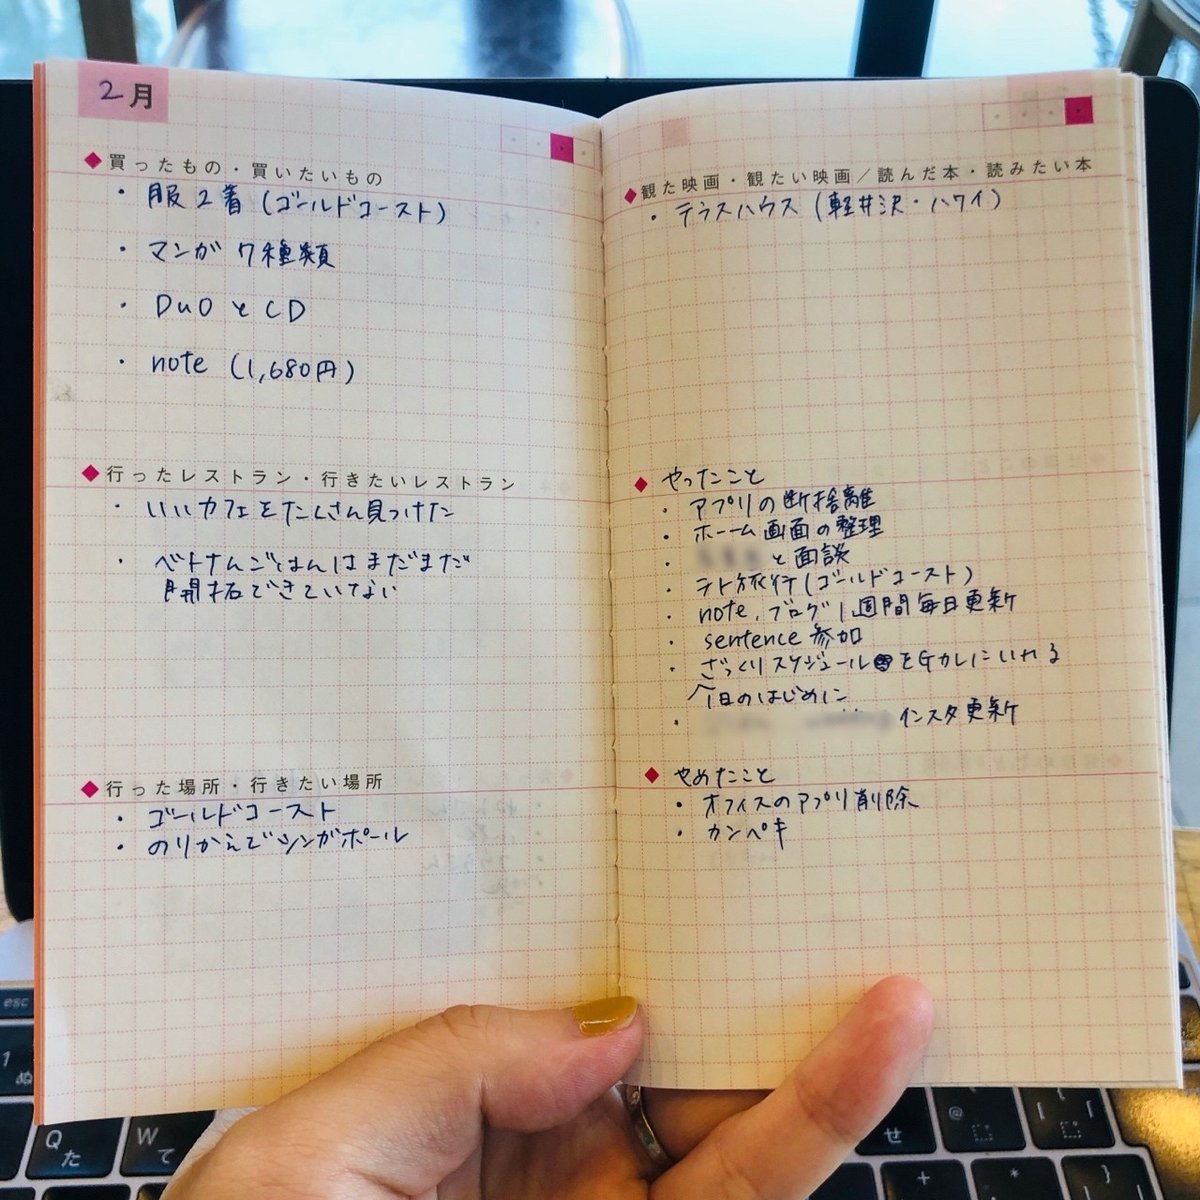 2月
◆買ったもの・買いたいもの
・服2着(ゴールドコースト)
・マンガ 7種類
・DuOとCD
・note (1,680円)
◆行ったレストラン・行きたいレストラン
・いいカフェをたくさん見つけた
・ベトナムごはんはまだまだ
開拓できていない
◆行った場所・行きたい場所
・ゴールドコースト
・のりかえでシンガポール
◆観た映画・観たい映画/読んだ本・読みたい本
・テラスハウス(軽井沢・ハワイ)
◆やったこと
・アプリの断捨離
・ホーム画面の整理
・と面談
・テト旅行(ゴールドコースト)
・note、ブログ1週間毎日更新
・sentence参加
・ざっくりスケジュールをGカレにいれる
今日のはじめに
・インスタ更新
◆やめたこと
・オフィスのアプリ削除
・カンペキ
esc
1
ぬ
Q
た
W
て
せ
@
+
*
[
「
}